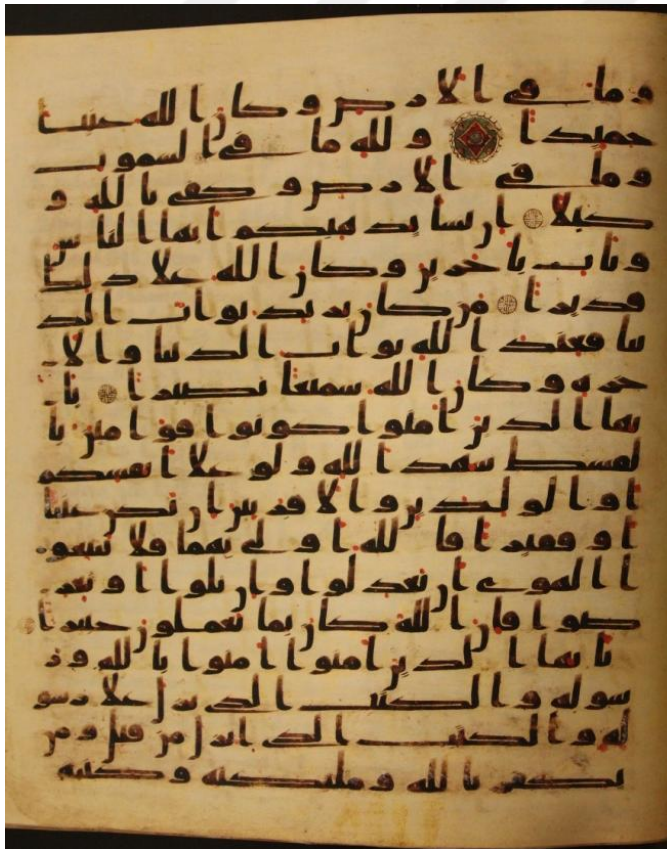 وما في الارض وكان الله غنيا
حميدا ولله ما في السموت
وما في الارض وكفى بالله و
كيلا ان يشا يذهبكم ايها الناس
ويات باخرين وكان الله على ذلك
قديرا من كان يريد ثواب الد
نيا فعند الله ثواب الدنيا والا
خره وكان الله سميعا بصيرا يا
يها الذين امنوا كونوا قوامين با
لقسط شهدا لله ولو على انفسكم
او الولدين والاقربين ان يكن غنيا
او فقيرا فالله اولى بهما فلا تتبعو
ا الهوى ان تعدلوا وان تلوا او تعر
ضوا فان الله كان بما تعملون خبيرا
يايها الذين امنوا امنوا بالله ور
سوله والكتب الذي نزل على رسو
له والكتب الذي انزل من قبل ومن
يكفر بالله وملىكته وكتبه